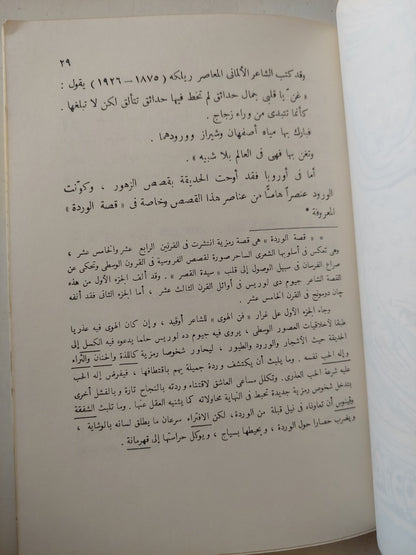 ٢٩
وقد كتب الشاعر الألمانى المعاصر ريلكه ( ١٨٧٥ – ١٩٢٦ ) يقول :
« غنّ يا قلبى جمال حدائق لم تخط فيها حدائق تتألق لكن لا تبلغها .
كأنما تتبدى من وراء زجاج .
فبارك بها مياه أصفهان وشيراز وورودهما .
وتغن بها فهى فى العالم بلا شبيه » .
أما فى أوروبا فقد أوحت الحديقة بقصص الزهور ، وكوّنت
الورود عنصراً هاماً من عناصر هذا القصص وخاصة فى « قصة الوردة »
المعروفة *
* « قصة الوردة » هى قصة رمزية انتشرت فى القرنين الرابع عشر والخامس عشر ،
وهى تعكس فى أسلوبها الشعرى الساحر صورة لقصص الفروسية فى القرون الوسطى وتحكى عن
صراع الفرسان فى سبيل الوصول إلى قلب « سيدة القصر » . وقد ألف الجزء الأول من هذه
القصة الشاعر جيوم دى لوريس فى أوائل القرن الثالث عشر ، أما الجزء الثانى فقد ألفه
چان دومونج فى القرن الخامس عشر .
وجاء الجزء الأول على غرار « فن الهوى » للشاعر أوڤيد ، وإن كان الهوى فيه عذريا
طبقا لأخلاقيات العصور الوسطى ، يروى فيه جيوم ده لوريس حلما يدعوه فيه الكسل إلى
حديقة حيث الأشجار والورود والطيور ، ليحاور شخوصا رمزية كاللذة والحنان والثراء
وإله الحب نفسه . وما يلبث أن يكتشف وردة جميلة يهم باقتطافها ، فيفرض إله الحب
عليه شرعة الحب العذرى . وتكلل مساعى العاشق لاقتناء وردته بالنجاح تارة وبالفشل أخرى
بتدخل شخوص رمزية جديدة تحبط فى النهاية محاولاته كما يثنيه العقل عنها . وما تلبث الشفقة
وڤينوس أن تعاوناه فى نيل قبلة من الوردة، لكن الافتراء سرعان ما يطلق لسانه بالوشاية ،
ويضرب حصارا حول الوردة ، ويحيطها بسياج ، ويوكل حراستها إلى قهرمانة .